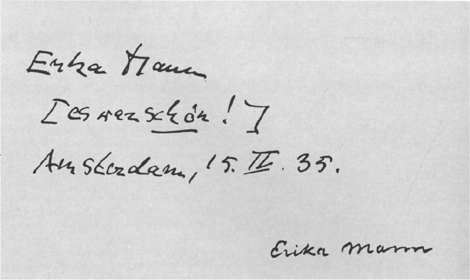 Erika Mann
[es war schön!]
Amsterdam, 15. II. 35.
Erika Mann